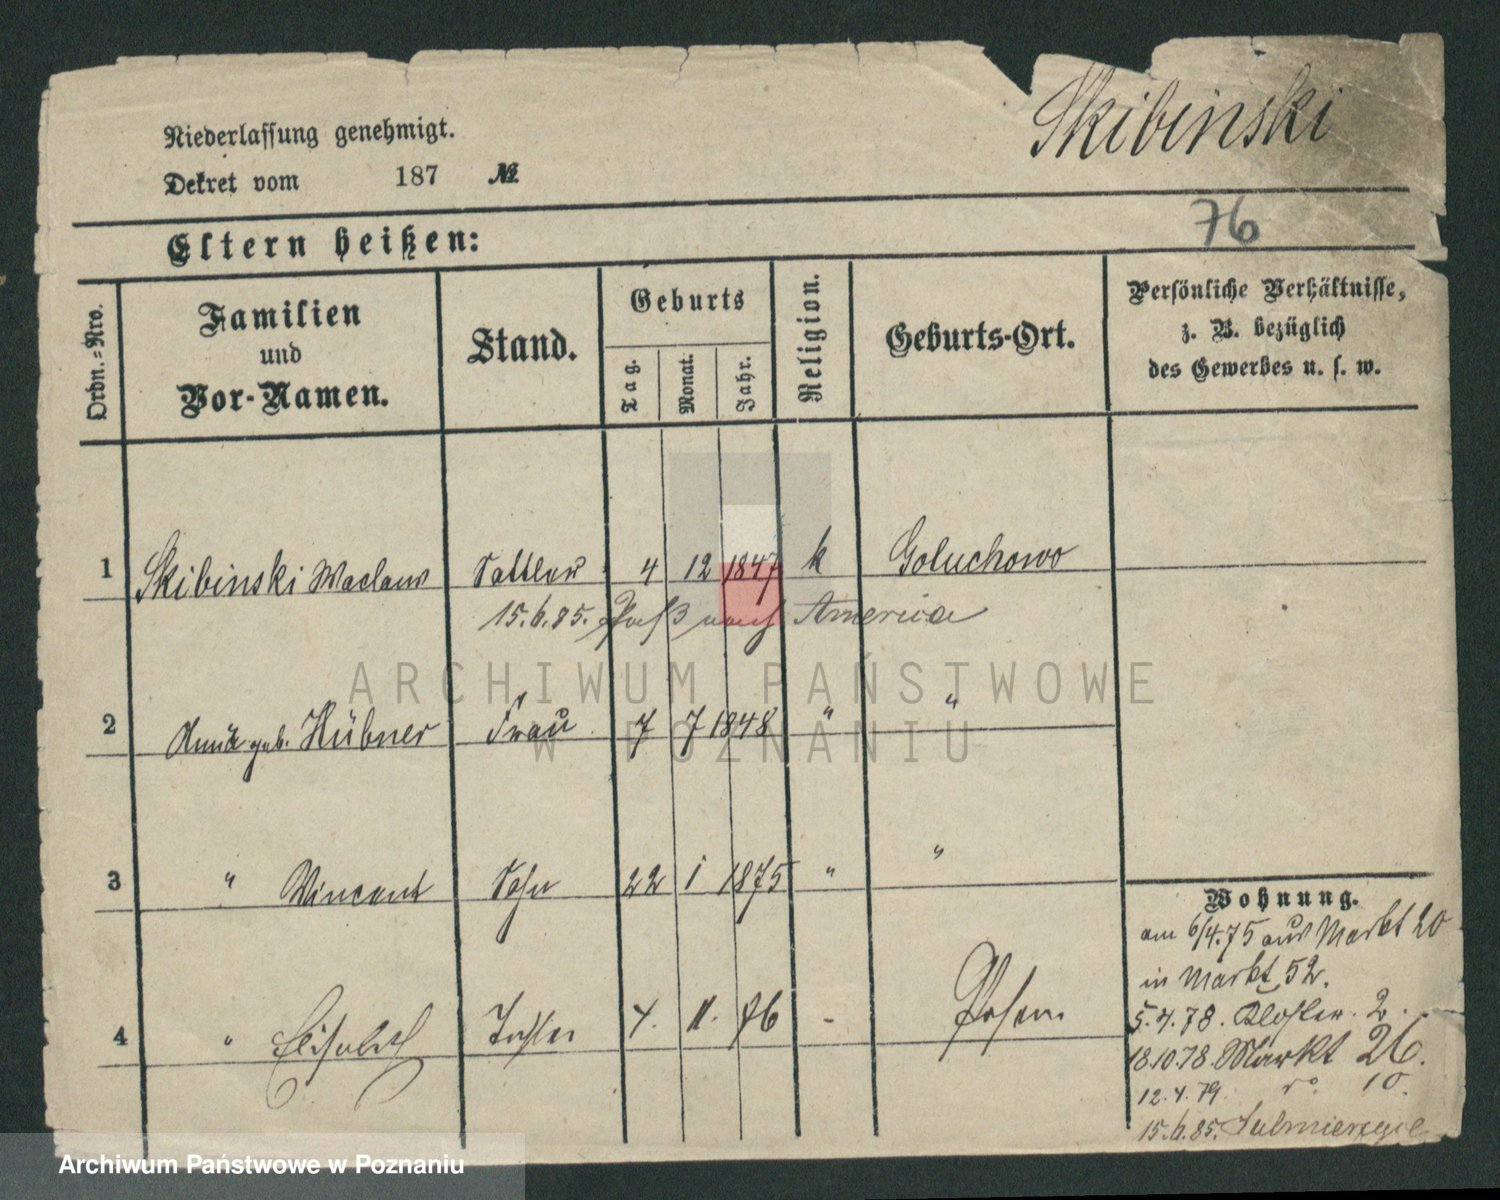 Skibinski
Niederlassung genehmigt.
Dekret vom 187 №
76
Eltern heißen:
Ordn.=Nro. Familien und Vor-Namen. Stand. Geburts Tag. Monat. Jahr. Religion. Geburts-Ort. Persönliche Verhältnisse, z. B. bezüglich des Gewerbes u. s. w.
1 Skibinski Waclaw Sattler 4 12 1847 k Goluchowo
15.6.85. Paß nach America
2 Anna geb. Hübner Frau 7 7 1848 " "
3 " Wincent Sohn 22 1 1875 " "
4 " Elisabeth Tochter 4. 11. 76 - Posen
Wohnung.
am 6/4.75 aus Markt 20
in Markt 52.
5.4.78. Kloster. 2.
18.10.78. Markt 26.
12.4.79. ro. 10.
15.6.85.
ARCHIWUM PAŃSTWOWE
W POZNANIU
Archiwum Państwowe w Poznaniu